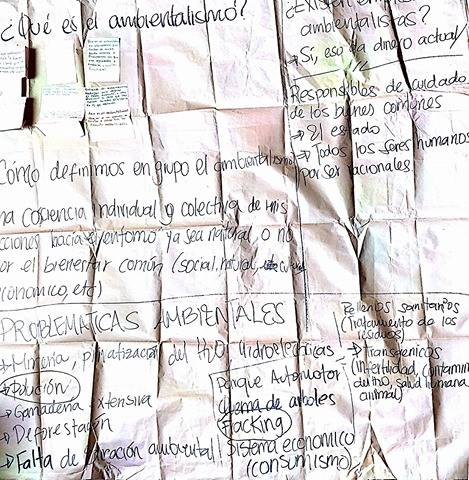 ¿Qué es el ambientalismo?
¿Existen
ambientalistas?
→ Sí, eso da dinero actual/
Responsables de cuidado
de los bienes comunes
→ El estado
→ Todos los seres humanos
por ser racionales
Cómo definimos en grupo el ambientalismo
na conciencia individual y colectiva de mis
cciones hacia el entorno ya sea natural, o no
or el bienestar común (social, natural,
conómico, etc)
PROBLEMATICAS AMBIENTALES
→ Minería, privatización del H2O Hidroeléctricas
→ Polución
→ Ganadería xtensiva
→ Deforestación
→ Falta de educación ambiental
Parque Automotor
quema de arboles
Facking
Sistema economico
(consumismo)
Rellenos sanitarios
(Tratamiento de los
residuos)
→ Transgenicos
(infertilidad, contamin
del H2O, salud humana
animal)